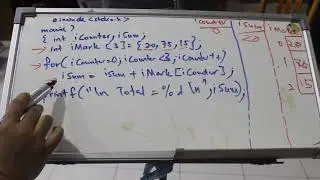 #include <stdio.h>
main()
{ int iCounter, iSum;
int iMark [3] = {20, 35, 15};
for(iCounter=0; iCounter<3; iCounter++)
iSum = iSum + iMark [iCounter];
printf("\n Total = %d \n", iSum);
iCounter
iSum
20
iMark
0 20
1 35
2 15